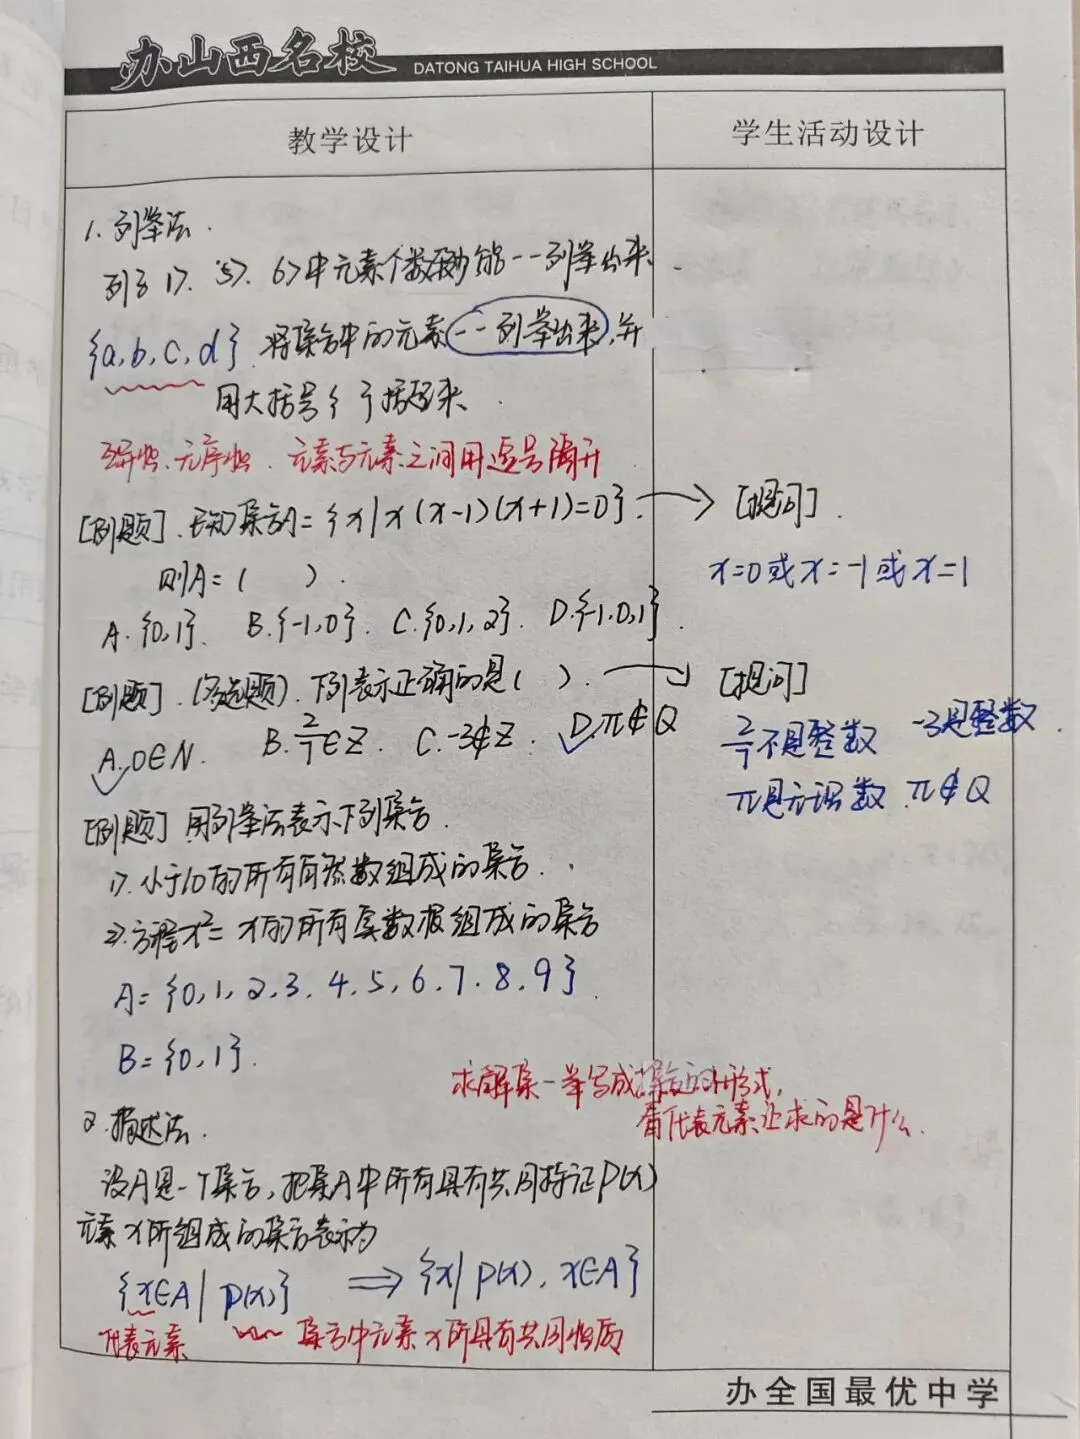 办山西名校 DATONG TAIHUA HIGH SCHOOL
教学设计
学生活动设计
1. 列举法.
例子 1). 5). 6)中元素个数较少能一一列举出来.
{a, b, c, d} 将集合中的元素一一列举出来,并
用大括号{ }括起来.
互异性、无序性. 元素与元素之间用逗号隔开
[例题]. 已知集合A={x|x(x-1)(x+1)=0}.
[提问].
则A=( ).
x=0或x=-1或x=1
A. {0,1}. B.{-1,0}. C.{0,1,2}. D.{-1,0,1}.
[例题]. (多选题). 下列表示正确的是( ).
[提问]
A. 0∈N. B. 2/7∈Z. C. -3∉Z. D. π∉Q
2/7不是整数 -3是整数.
π是无理数 π∉Q
[例题] 用列举法表示下列集合.
1). 小于10的所有自然数组成的集合.
2). 方程x²=x的所有实数根组成的集合
A={0,1,2,3,4,5,6,7,8,9}.
B={0,1}.
求解集一举写成集合的形式,
看代表元素让求的是什么.
2. 描述法.
设A是一个集合,把集A中所有具有共同特征P(x)
元素x所组成的集合表示为
{x∈A | P(x)} ⇒ {x| P(x), x∈A}
代表元素 集合中元素x所具有共同性质
办全国最优中学